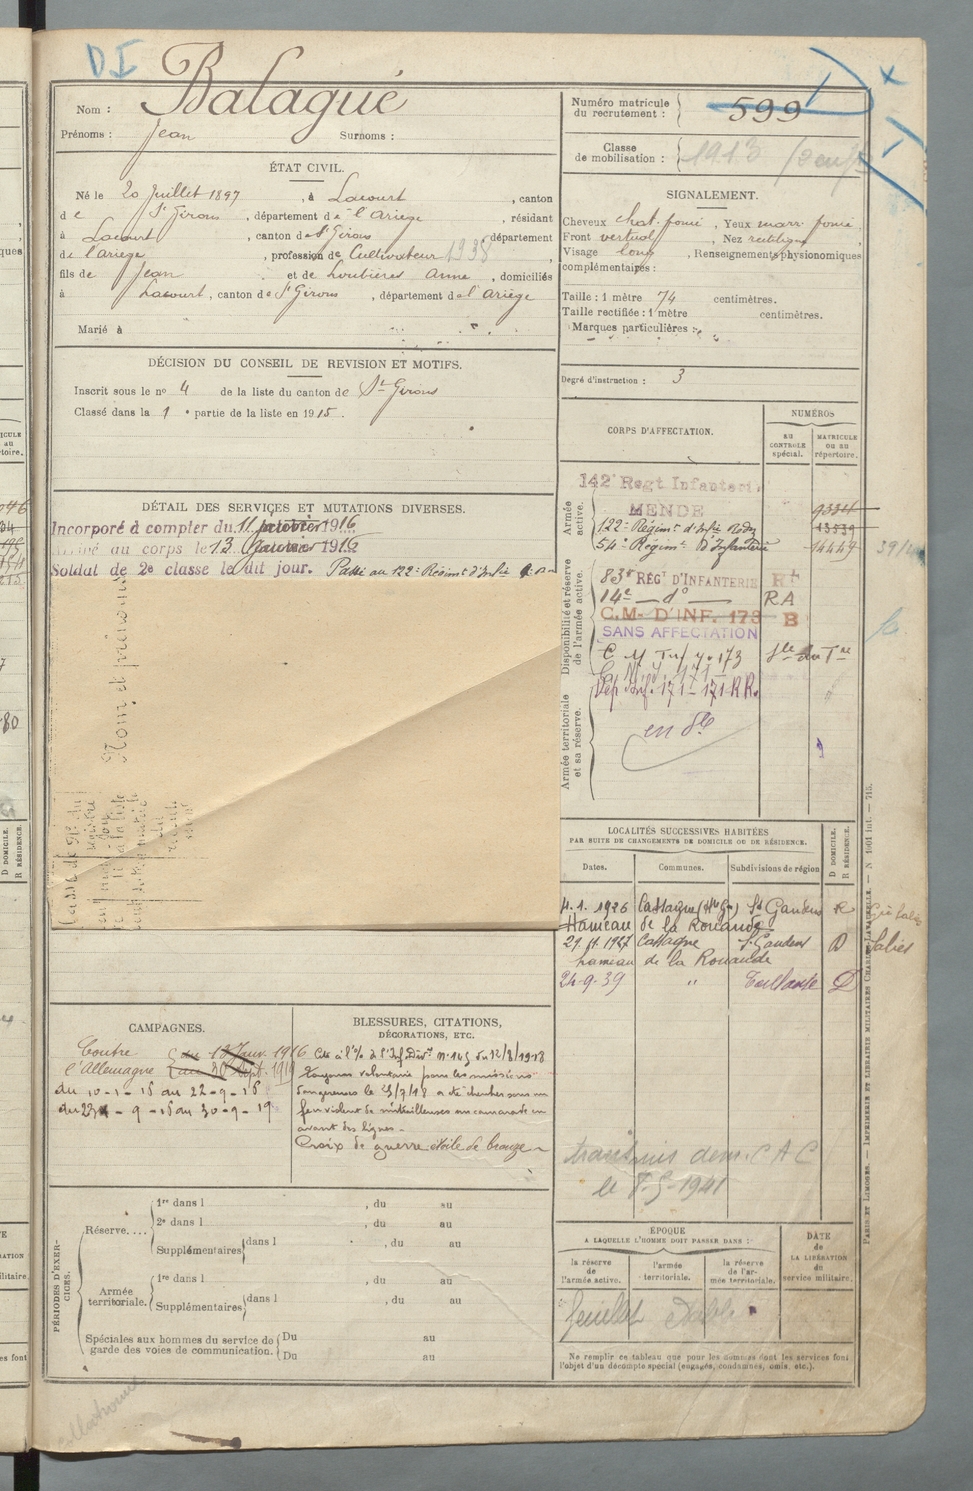 DI
Nom : Balagué
Prénoms : Jean Surnoms :
ÉTAT CIVIL.
Né le 20 Juillet 1897, à Lacourt, canton
de St Girons, département de l'Ariège, résidant
à Lacourt, canton de St Girons, département
de l'ariège, profession de Cultivateur 1938
fils de Jean et de Loubières Anne, domiciliés
à Lacourt, canton de St Girons, département de l'Ariège
Marié à
DÉCISION DU CONSEIL DE REVISION ET MOTIFS.
Inscrit sous le no 4 de la liste du canton de St Girons
Classé dans la 1e partie de la liste en 1915.
DÉTAIL DES SERVICES ET MUTATIONS DIVERSES.
Incorporé à compter du 11 janvier 1916
au corps le 13 Janvier 1916
Soldat de 2e classe le dit jour. Passé au 122e Régimt d'Infie
Nom et prénoms
CAMPAGNES.
Contre du 13 Janv. 1916
l'Allemagne au 30 Sept. 1919
du 10-1-16 au 22-9-18
du 23-9-18 au 30-9-19
BLESSURES, CITATIONS,
DÉCORATIONS, ETC.
Cité à l'o/ de l'Inf Divre no 145 du 12/8/1918
volontaire pour les missions
dangereuses le /7/18 a été chercher sous un
feu violent de mitrailleuses un camarade en
avant des lignes.
Croix de guerre étoile de bronze
PÉRIODES D'EXERCICES.
Réserve....
1re dans l , du au
2e dans l , du au
Supplémentaires dans l , du au
Armée territoriale.
1re dans l , du au
Supplémentaires dans l , du au
Spéciales aux hommes du service de garde des voies de communication.
Du au
Du au
Numéro matricule
du recrutement : 599
Classe
de mobilisation : 1913
SIGNALEMENT.
Cheveux chat. foncé, Yeux marr. foncé
Front vertical, Nez rectiligne
Visage long, Renseignements physionomiques
complémentaires :
Taille : 1 mètre 74 centimètres.
Taille rectifiée : 1 mètre centimètres.
Marques particulières :
Degré d'instruction : 3
CORPS D'AFFECTATION.
NUMÉROS
AU CONTRÔLE spécial.
MATRICULE ou au répertoire.
Armée active.
142e Regt Infanterie.
MENDE
122e Régimt d'Infie Rodez 13539
54e Régimt d'Infanterie 14449
Disponibilité et réserve de l'armée active.
83e RÉGt D'INFANTERIE
14e — do — RA
C.M- D'INF. 173 B
SANS AFFECTATION
C M Inf no 173
C. M. I. 171
Dép. Inf. 171 - 171 RR.
Armée territoriale et sa réserve.
en dle
LOCALITÉS SUCCESSIVES HABITÉES
PAR SUITE DE CHANGEMENTS DE DOMICILE OU DE RÉSIDENCE.
Dates. Communes. Subdivisions de région
D DOMICILE.
R RÉSIDENCE.
4.1.1926 Cassagne (Hte Gne) St Gaudens R
Hameau de la Rouande
21 1927 Cassagne St Gaudens D Salies
hameau de la Rouande
24-9-39 " Toulouse D
transmis dem. C A C
le 8-5-1941
ÉPOQUE
A LAQUELLE L'HOMME DOIT PASSER DANS :
la réserve de l'armée active.
l'armée territoriale.
la réserve de l'armée territoriale.
DATE
de
LA LIBÉRATION
du
service militaire.
feuillet
Ne remplir ce tableau que pour les hommes dont les services font
l'objet d'un décompte spécial (engagés, condamnés, omis, etc.).
PARIS ET LIMOGES. — IMPRIMERIE ET LIBRAIRIE MILITAIRES CHARLES-LAVAUZELLE. — N 1901 int. — 715.